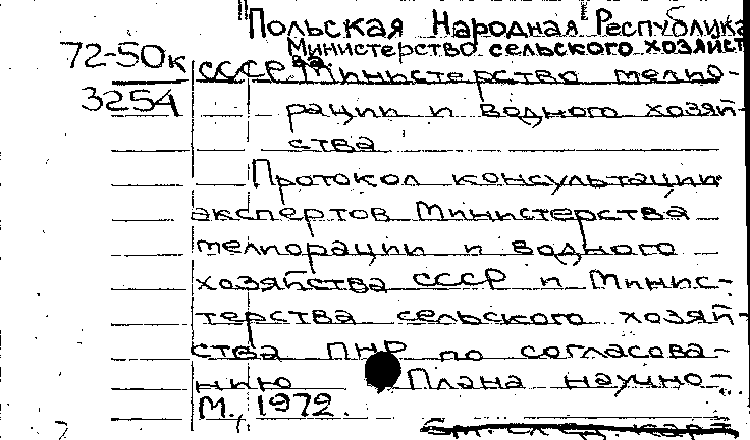 "Польская Народная Республика
Министерство сельского хозяйст
72-50к
3254
СССР. Министерство мелио-
рации и водного хозяй-
ства
Протокол консультации
экспертов Министерства
мелиорации и водного
хозяйства СССР и Минис-
терства сельского хозяй-
ства ПНР по согласова-
нию Плана научно-
М., 1972.
См. след. карт